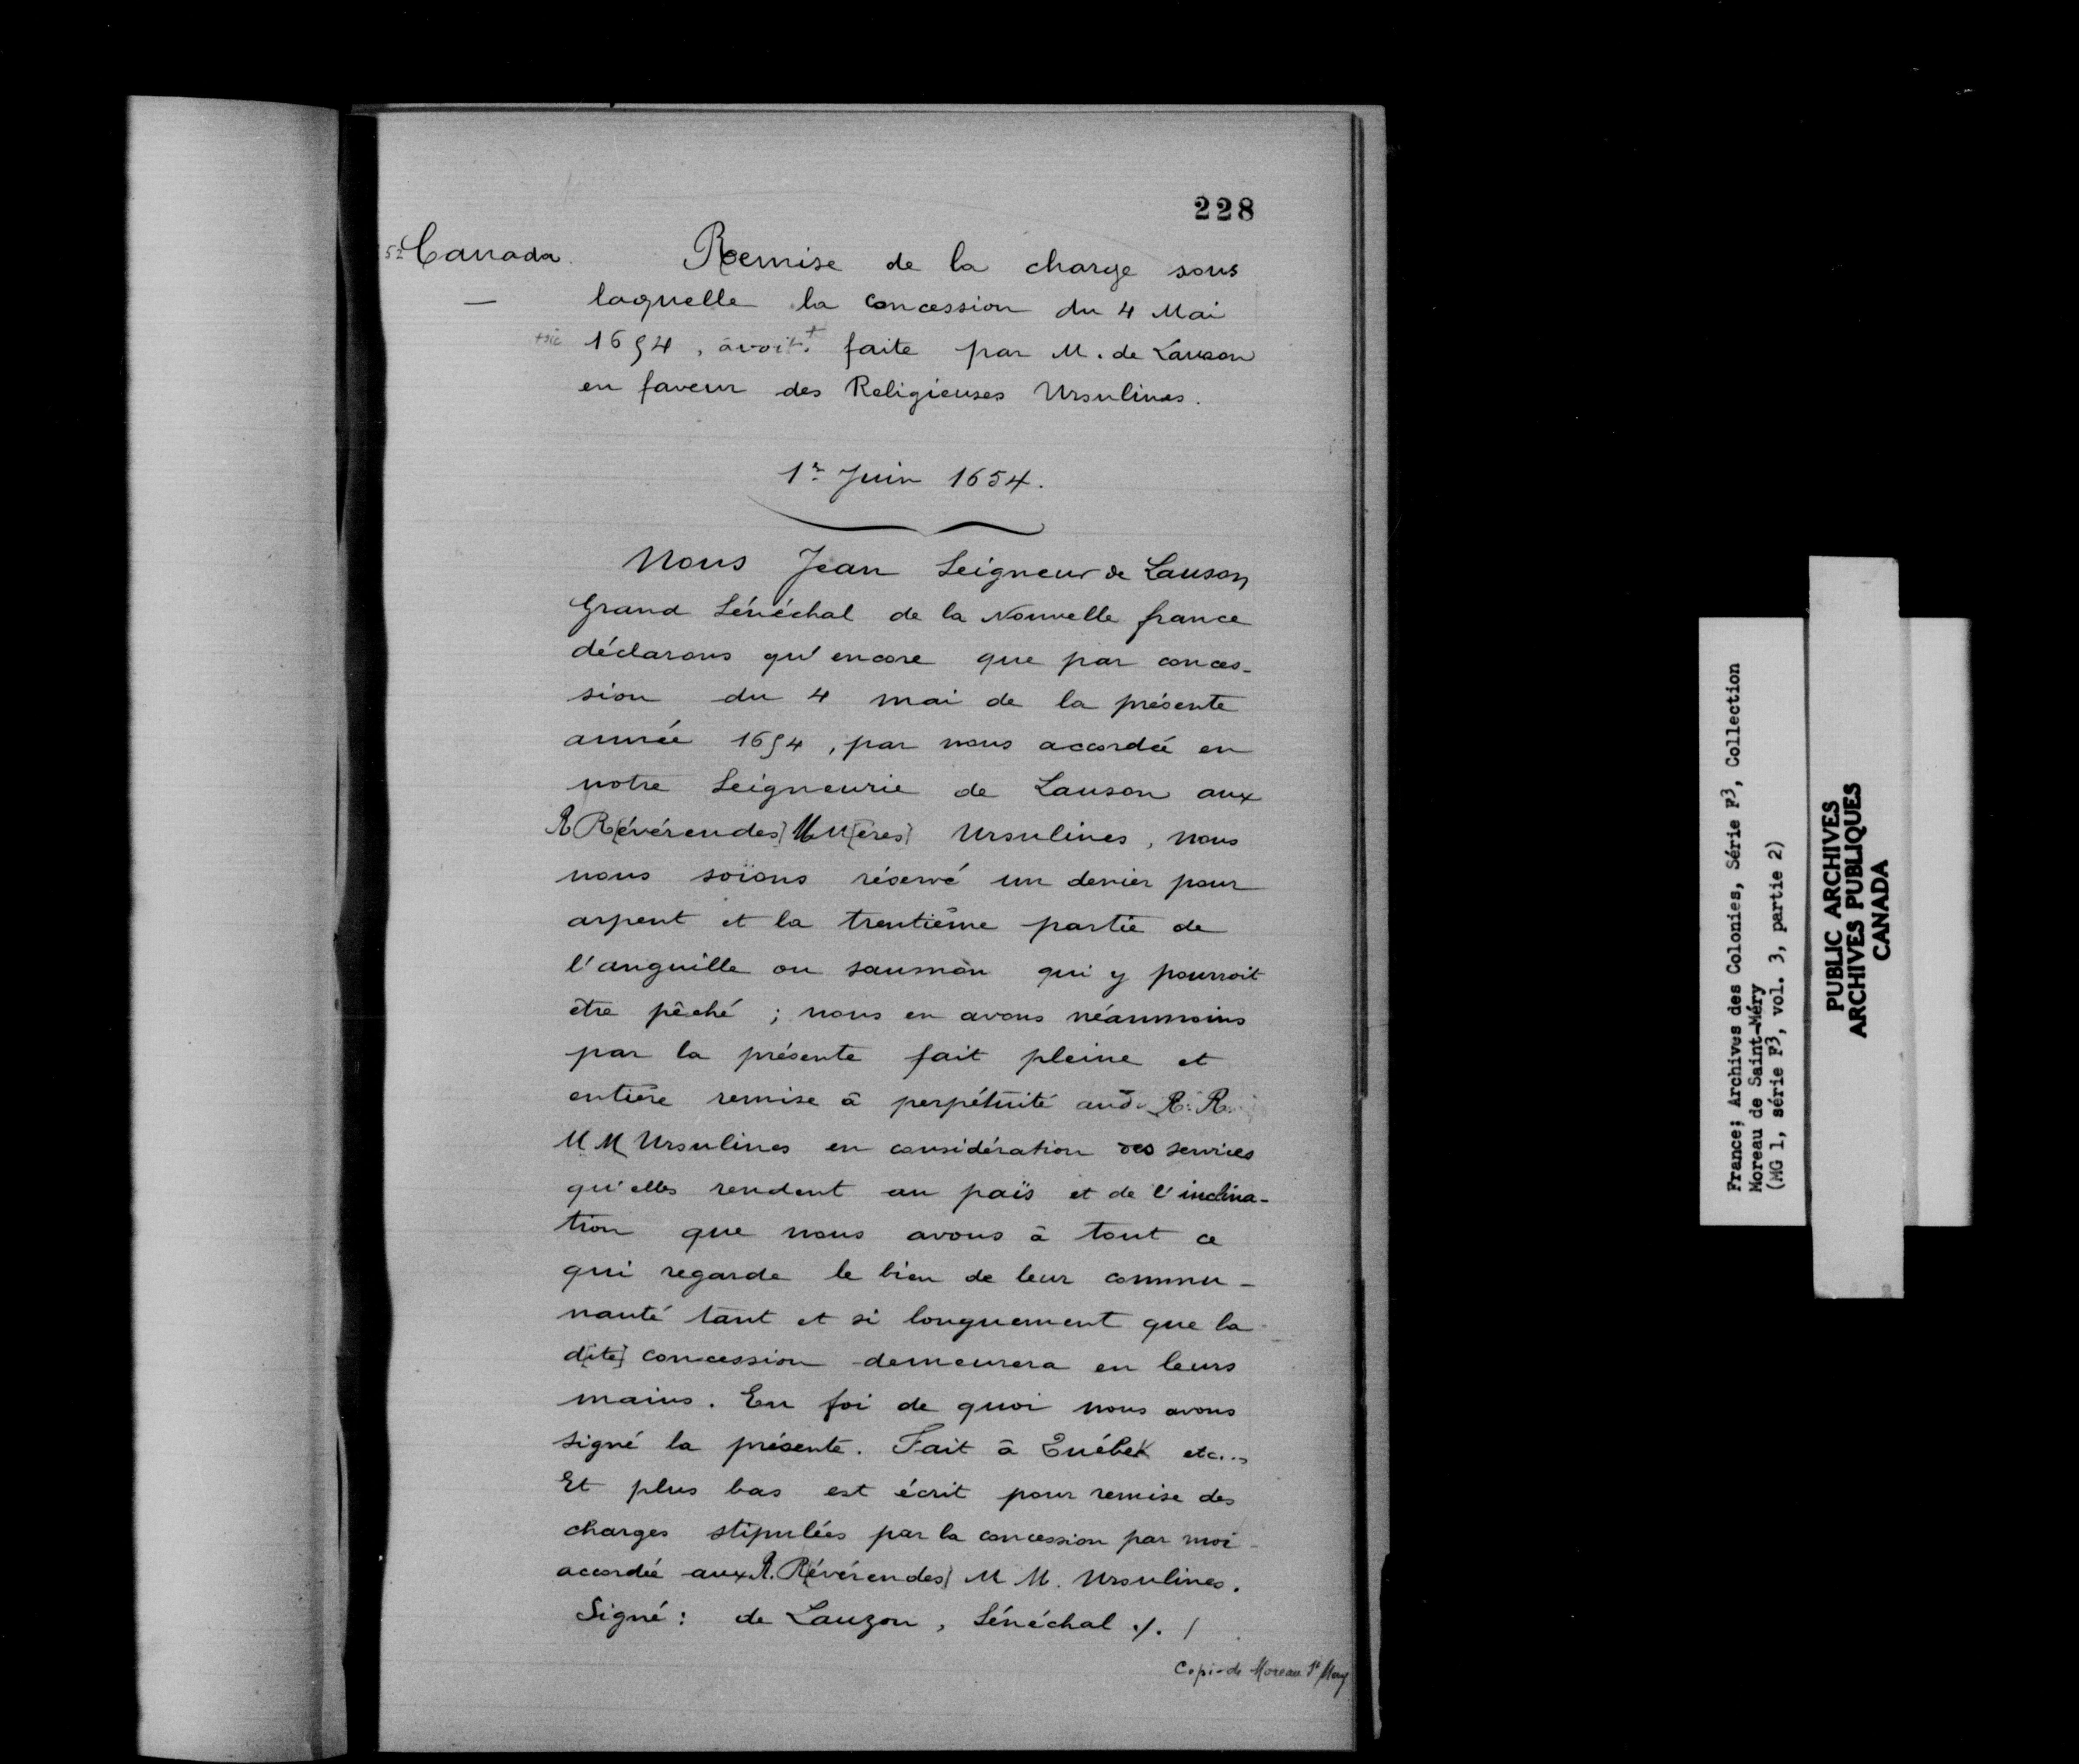 228
Canada.
—
Remise de la charge sous
laquelle la concession du 4 Mai
+sic 1654, avoit + faite par M. de Lauson
en faveur des Religieuses Ursulines.
1er Juin 1654.
Nous Jean Seigneur de Lauson
Grand Sénéchal de la Nouvelle france
déclarons qu'encore que par conces-
sion du 4 mai de la présente
année 1654, par nous accordée en
notre Seigneurie de Lauson aux
R R[évérendes] M M[ères] Ursulines, nous
nous soïons réservé un denier pour
arpent et la trentième partie de
l'anguille ou saumon qui y pourroit
être pêché ; nous en avons néanmoins
par la présente fait pleine et
entière remise à perpétuité aud. R. R.
M M Ursulines en considération des services
qu'elles rendent au païs et de l'inclina-
tion que nous avons à tout ce
qui regarde le bien de leur commu-
nauté tant et si longuement que la
d[ite] concession demeurera en leurs
mains. En foi de quoi nous avons
signé la présente. Fait à Québek etc...
Et plus bas est écrit pour remise des
charges stipulées par la concession par moi
accordée aux R. R[évérendes] M M. Ursulines.
Signé : de Lauzon, Sénéchal ./. /
Copie de Moreau St Mery
France; Archives des Colonies, Série F3, Collection
Moreau de Saint-Méry
(MG 1, série F3, vol. 3, partie 2)
PUBLIC ARCHIVES
ARCHIVES PUBLIQUES
CANADA